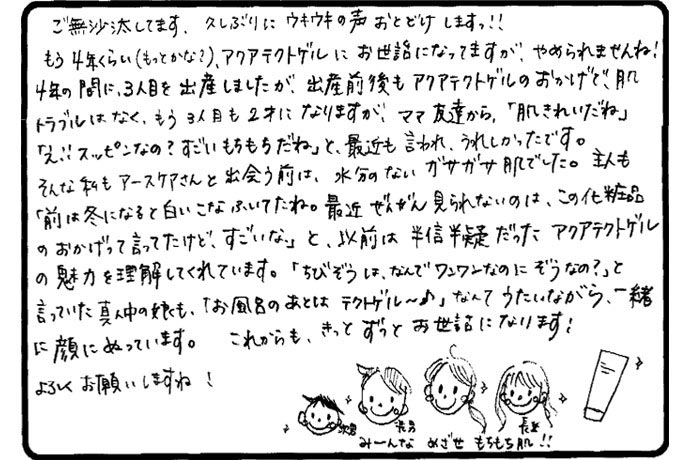 ご無沙汰してます、久しぶりにウキウキの声おとどけしますっ!!
もう4年くらい(もっとかな?)、アクアテクトゲルにお世話になってますが、やめられませんね!
4年の間に、3人目を出産しましたが、出産前後もアクアテクトゲルのおかげで、肌
トラブルはなく、もう3人目も2才になりますが、ママ友達から、「肌きれいだね」
「え!!スッピンなの?すごいもちもちだね」と、最近も言われ、うれしかったです。
そんな私もアースケアさんと出会う前は、水分のないガサガサ肌でした。主人も
「前は冬になると白いこなふいてたね。最近ぜんぜん見られないのは、この化粧品
のおかげって言ってたけど、すごいな」と、以前は半信半疑だったアクアテクトゲル
の魅力を理解してくれています。「ちびぞうは、なんでワンワンなのにぞうなの?」と
言っていた真ん中の娘も、「お風呂のあとはテクトゲル〜♪」なんてうたいながら、一緒
に顔にぬっています。 これからも、きっとずっとお世話になります!
よろしくお願いしますね!
長女
みーんなめざせもちもち肌!!